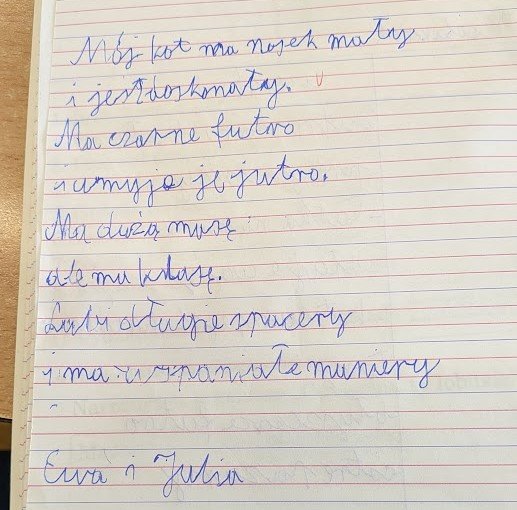 Mój kot ma nosek mały
i jest doskonały.
Ma czarne futro
i umyje ję jutro.
Ma dużą masę
ale ma klasę.
Lubi długie spacery
i ma wspaniałe maniery
Ewa i Julia